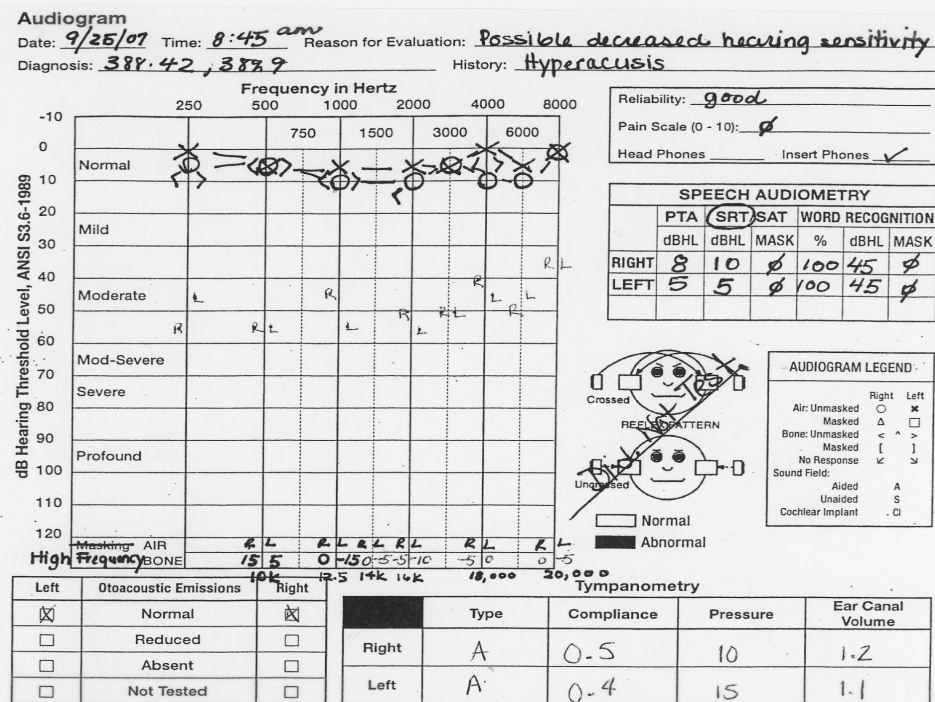 Audiogram
Date: 9/25/07 Time: 8:45 am Reason for Evaluation: Possible decreased hearing sensitivity
Diagnosis: 388.42, 388.9 History: Hyperacusis
Frequency in Hertz
250 500 1000 2000 4000 8000
750 1500 3000 6000
dB Hearing Threshold Level, ANSI S3.6-1989
-10
0
Normal
10
20
Mild
30
40
Moderate
50
60
Mod-Severe
70
Severe
80
90
Profound
100
110
120
R L
R
R
L R L
L R L R
R L R L L
Masking AIR R L R L R L R L R L R L
High Frequency BONE 15 5 0 -15 0 -5 -5 -10 -5 0 0 -5
10K 12.5 14K 16K 18,000 20,000
Reliability: good
Pain Scale (0 - 10): Ø
Head Phones Insert Phones ✓
SPEECH AUDIOMETRY
PTA SRT SAT WORD RECOGNITION
dBHL dBHL MASK % dBHL MASK
RIGHT 8 10 Ø 100 45 Ø
LEFT 5 5 Ø 100 45 Ø
Crossed
REFLEX PATTERN
Uncrossed
Normal
Abnormal
AUDIOGRAM LEGEND
Right Left
Air: Unmasked O ✖
Masked Δ □
Bone: Unmasked < ^ >
Masked [ ]
No Response ↙ ↘
Sound Field:
Aided A
Unaided S
Cochlear Implant CI
Left Otoacoustic Emissions Right
☒ Normal ☒
□ Reduced □
□ Absent □
□ Not Tested □
Tympanometry
Type Compliance Pressure Ear Canal Volume
Right A 0.5 10 1.2
Left A 0.4 15 1.1